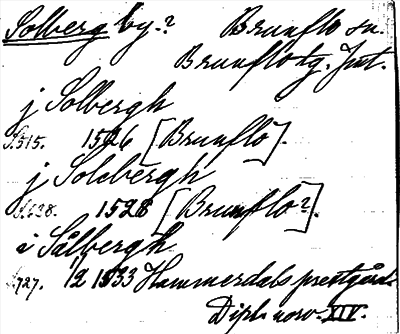 Solberg by.? Brunflo sn.
Brunflo tg. Jmt.
j Solbergh
S.515. 1526 [Brunflo].
j Solebergh
S.638. 1528 [Brunflo?].
i Sålbergh
S.727. 12 1533 Hammerdals prestgård
Dipl. norv. XIV.